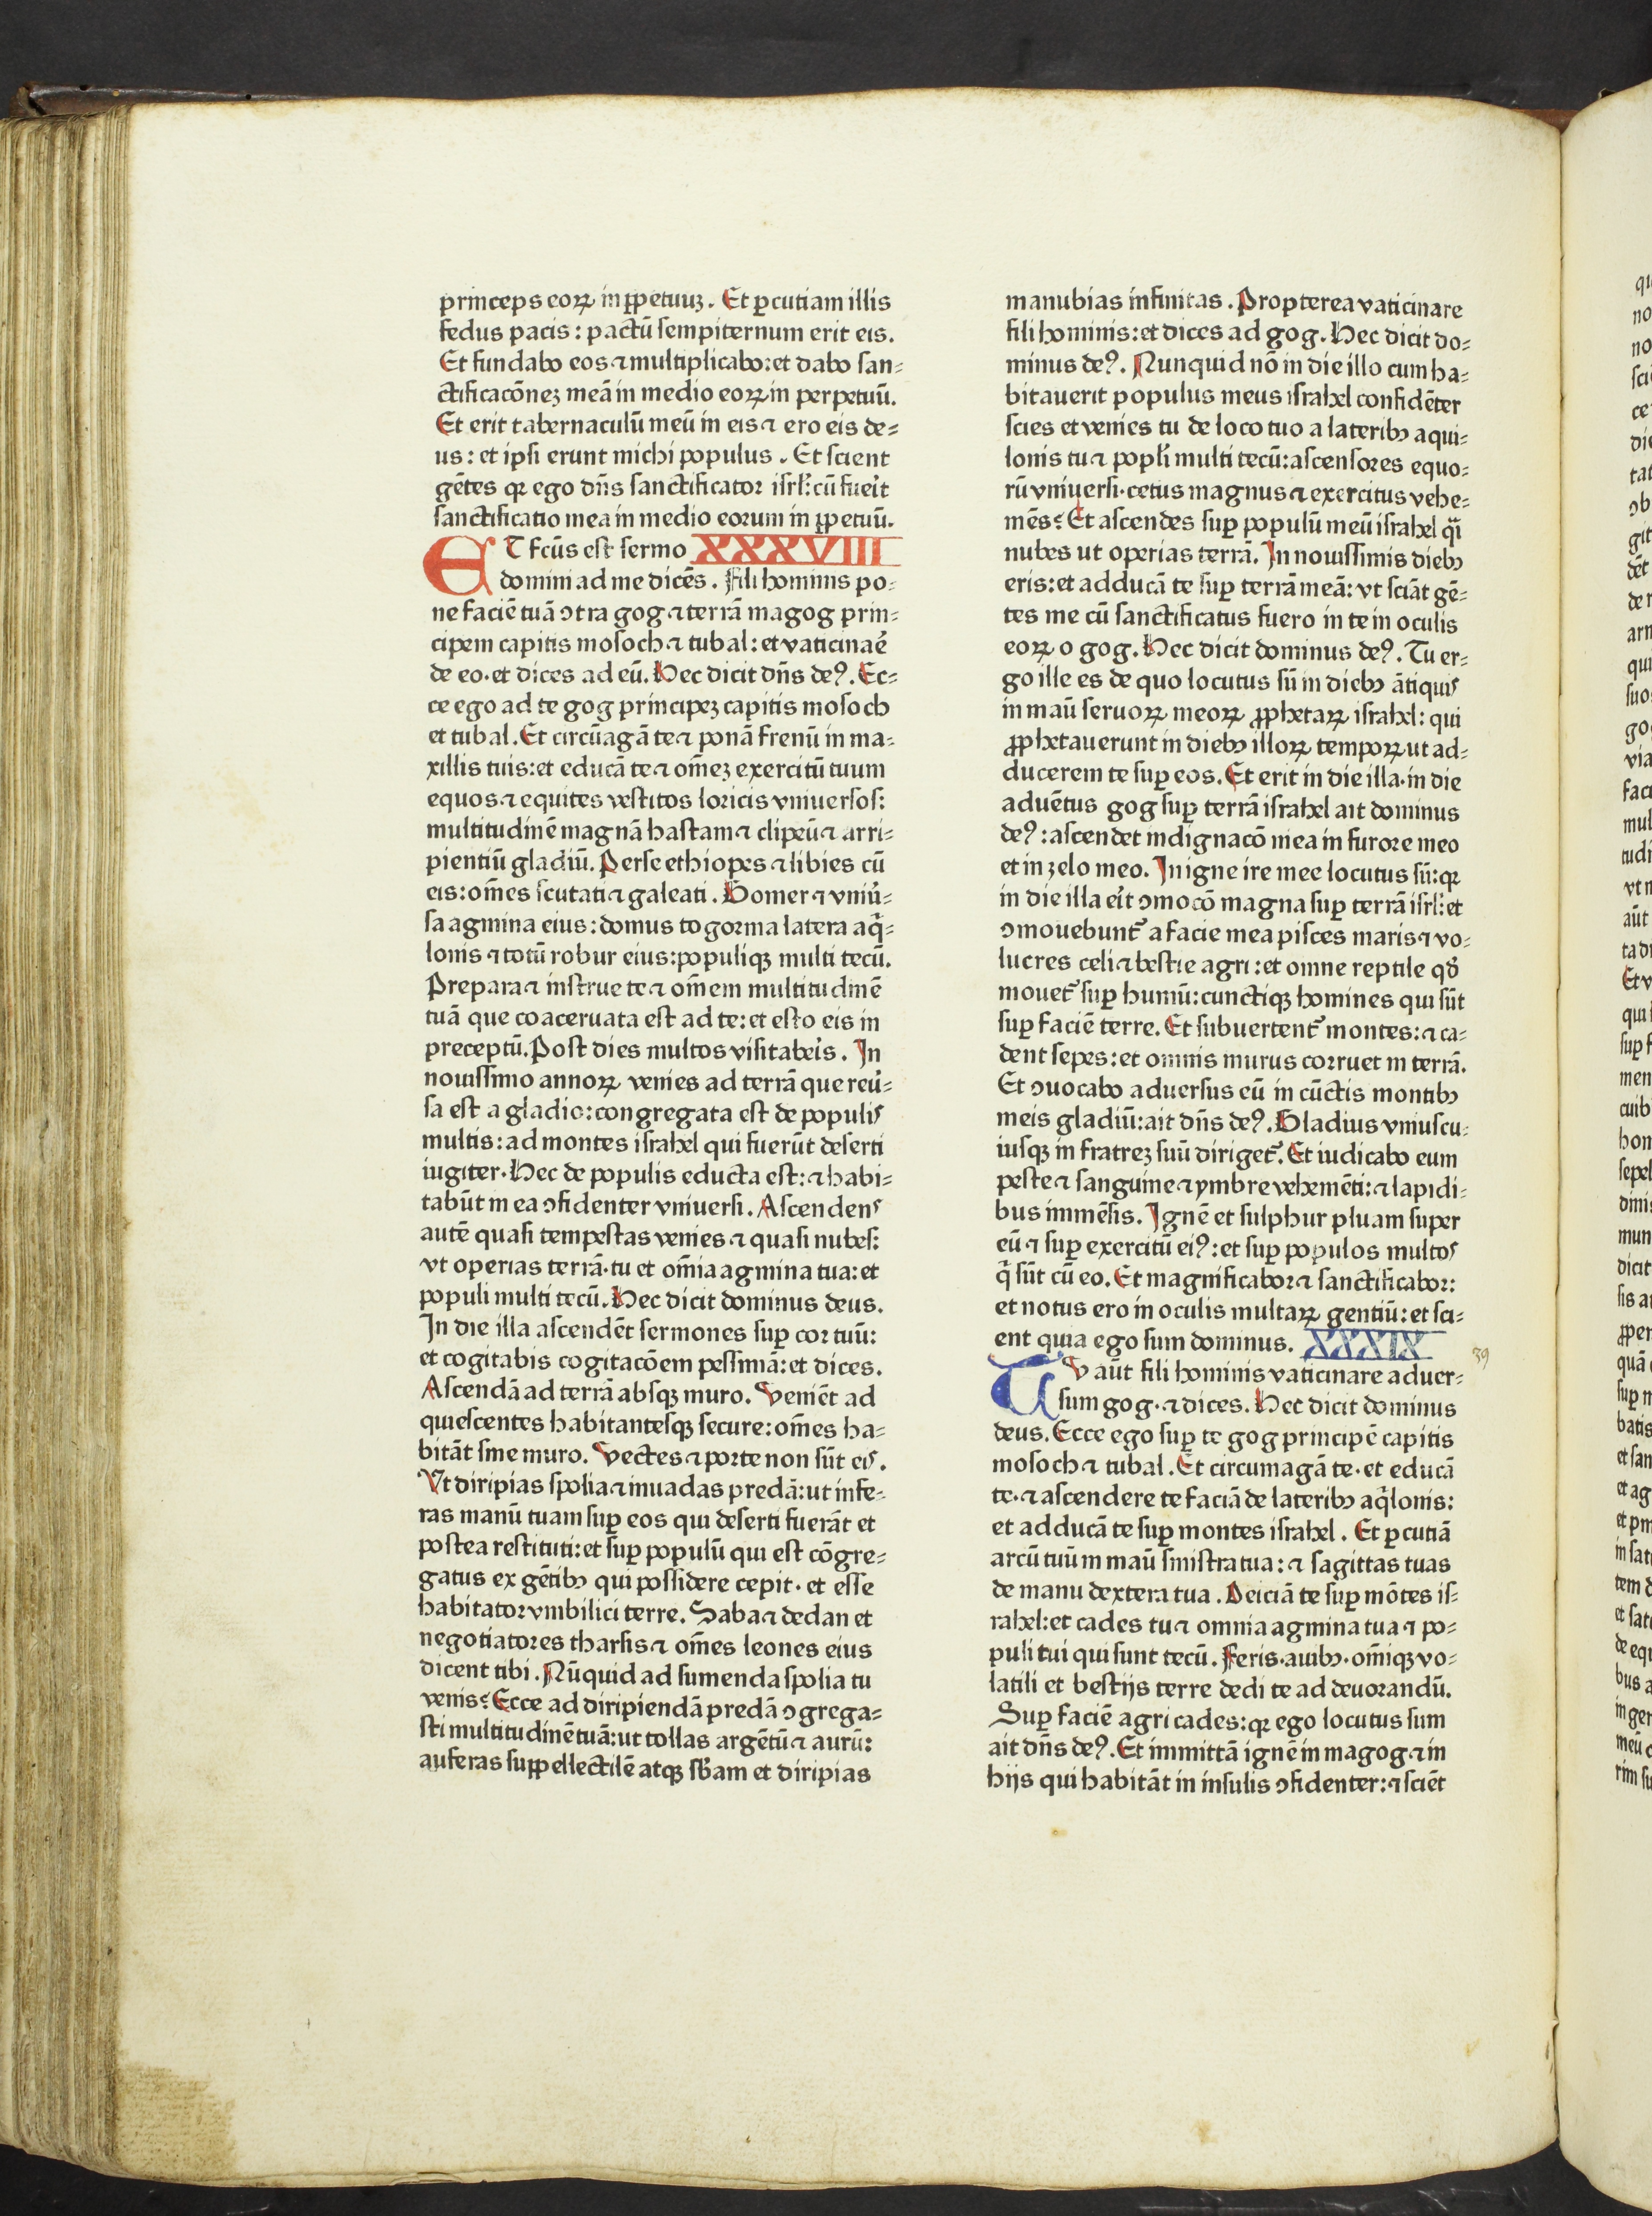 princeps eoꝝ in ꝑpetuuꝫ. Et ꝑcutiam illis
fedus pacis: pactū sempiternum erit eis.
Et fundabo eos ⁊ multiplicabo: et dabo san⸗
ctificacōneꝫ meā in medio eoꝝ in perpetuū.
Et erit tabernaculū meū in eis ⁊ ero eis de⸗
us: et ipsi erunt michi populus. Et scient
gētes qꝛ ego dn̄s sanctificator isrl̓: cū fuei̓t
sanctificatio mea in medio eorum in ꝑpetuū.
ET fcūs est sermo XXXVIII
domini ad me dicēs. Fili hominis po⸗
ne faciē tuā ↄtra gog ⁊ terrā magog prin⸗
cipem capitis mosoch ⁊ tubal: et vaticinae̓
de eo. et dices ad eū. Hec dicit dn̄s deꝰ. Ec⸗
ce ego ad te gog principeꝫ capitis mosoch
et tubal. Et circūagā te ⁊ ponā frenū in ma⸗
xillis tuis: et educā te ⁊ om̄eꝫ exercitū tuum
equos ⁊ equites vestitos loricis vniuersos:
multitudinē magnā hastam ⁊ clipeū ⁊ arri⸗
pientiū gladiū. Perse ethiopes ⁊ libies cū
eis: om̄es scutati ⁊ galeati. Gomer ⁊ vniu̓⸗
sa agmina eius: domus togorma latera aq̄⸗
lonis ⁊ totū robur eius: populiqꝫ multi tecū.
Prepara ⁊ instrue te ⁊ om̄em multitudinē
tuā que coaceruata est ad te: et esto eis in
preceptū. Post dies multos visitabei̓s. In
nouissimo annoꝝ venies ad terrā que reu̓⸗
sa est a gladio: congregata est de populis
multis: ad montes israhel qui fuerūt deserti
iugiter. Hec de populis educta est: ⁊ habi⸗
tabūt in ea ↄfidenter vniuersi. Ascendens
autē quasi tempestas venies ⁊ quasi nubes:
vt operias terrā. tu et om̄ia agmina tua: et
populi multi tecū. Hec dicit dominus deus.
In die illa ascendēt sermones suꝑ cor tuū:
et cogitabis cogitacōem pessimā: et dices.
Ascendā ad terrā absqꝫ muro. Veniēt ad
quiescentes habitantesqꝫ secure: om̄es ha⸗
bitāt sine muro. Vectes ⁊ porte non sūt eis.
Vt diripias spolia ⁊ inuadas predā: ut infe⸗
ras manū tuam suꝑ eos qui deserti fuerāt et
postea restituti: et suꝑ populū qui est cōgre⸗
gatus ex gētibꝰ qui possidere cepit. et esse
habitator vmbilici terre. Saba ⁊ dedan et
negotiatores tharsis ⁊ om̄es leones eius
dicent tibi. Nūquid ad sumenda spolia tu
venis? Ecce ad diripiendā predā ↄgrega⸗
sti multitudinē tuā: ut tollas argētū ⁊ aurū:
auferas suꝑpellectilē atqꝫ sb̄am et diripias
manubias infinitas. Propterea vaticinare
fili hominis: et dices ad gog. Hec dicit do⸗
minus deꝰ. Nunquid nō in die illo cum ha⸗
bitauerit populus meus israhel confidēter
scies et venies tu de loco tuo a lateribꝰ aqui⸗
lonis tu ⁊ popl̓i multi tecū: ascensores equo⸗
rū vniuersi. cetus magnus ⁊ exercitus vehe⸗
mēs? Et ascendes suꝑ populū meū israhel qi̓
nubes ut operias terrā. In nouissimis diebꝰ
eris: et adducā te suꝑ terrā meā: vt sciāt gē⸗
tes me cū sanctificatus fuero in te in oculis
eoꝝ o gog. Hec dicit dominus deꝰ. Tu er⸗
go ille es de quo locutus sū in diebꝰ ātiquis
in maū seruoꝝ meoꝝ ꝓphetaꝝ israhel: qui
ꝓphetauerunt in diebꝰ illoꝝ tempoꝝ ut ad⸗
ducerem te suꝑ eos. Et erit in die illa. in die
aduētus gog suꝑ terrā israhel ait dominus
deꝰ: ascendet indignacō mea in furore meo
et in zelo meo. In igne ire mee locutus sū: qꝛ
in die illa ei̓t ↄmocō magna suꝑ terrā isrl̓: et
ↄmouebunt᷑ a facie mea pisces maris ⁊ vo⸗
lucres celi ⁊ bestie agri: et omne reptile qd̓
mouet᷑ suꝑ humū: cunctiqꝫ homines qui sūt
suꝑ faciē terre. Et subuertent᷑ montes: ⁊ ca⸗
dent sepes: et omnis murus corruet in terrā.
Et ↄuocabo aduersus eū in cūctis montibꝰ
meis gladiū: ait dn̄s deꝰ. Gladius vniuscu⸗
iusqꝫ in fratreꝫ suū diriget᷑. Et iudicabo eum
peste ⁊ sanguine ⁊ ymbre vehemēti: ⁊ lapidi⸗
bus immēsis. Ignē et sulphur pluam super
eū ⁊ suꝑ exercitū eiꝰ: et suꝑ populos multos
q̄ sūt cū eo. Et magnificabor ⁊ sanctificabor:
et notus ero in oculis multaꝝ gentiū: et sci⸗
ent quia ego sum dominus. XXXIX
39
TV aūt fili hominis vaticinare aduer⸗
sum gog. ⁊ dices. Hec dicit dominus
deus. Ecce ego suꝑ te gog principē capitis
mosoch ⁊ tubal. Et circumagā te. et educā
te. ⁊ ascendere te faciā de lateribꝰ aq̄lonis:
et adducā te suꝑ montes israhel. Et ꝑcutiā
arcū tuū in maū sinistra tua: ⁊ sagittas tuas
de manu dextera tua. Deiciā te suꝑ mōtes is⸗
rahel: et cades tu ⁊ omnia agmina tua ⁊ po⸗
puli tui qui sunt tecū. Feris. auibꝰ. om̄iqꝫ vo⸗
latili et bestijs terre dedi te ad deuorandū.
Suꝑ faciē agri cades: qꝛ ego locutus sum
ait dn̄s deꝰ. Et immittā ignē in magog ⁊ in
hijs qui habitāt in insulis ↄfidenter: ⁊ sciēt